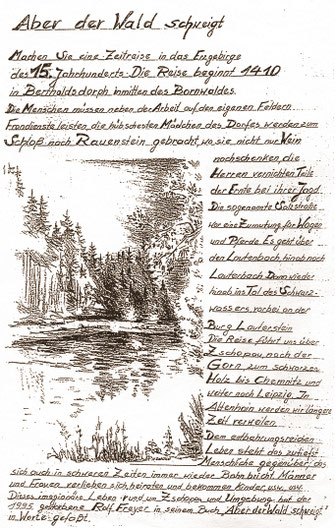 Aber der Wald schweigt
Machen Sie eine Zeitreise in das Erzgebirge
des 15. Jahrhunderts. Die Reise beginnt 1410
in Bertholdsdorf inmitten des Bornwaldes.
Die Menschen müssen neben der Arbeit auf den eigenen Feldern
Frondienste leisten, die hübschesten Mädchen des Dorfes werden zum
Schloß nach Rauenstein gebracht, wo sie nicht nur Wein
nachschenken, die
Herren vernichten Teile
der Ernte bei ihrer Jagd.
Die sogenannte Salzstraße
war eine Zumutung für Wagen
und Pferde. Es geht über
den Lautenbach, hinab nach
Lauterbach. Dann wieder
hinab ins Tal des Schwarz-
wassers vorbei an der
Burg Lauterstein
Die Reise führt uns über
Zschopau, nach der
Gorn zum schwarzen
Holz bis Chemnitz und
weiter nach Leipzig. In
Altenhain werden wir lange
Zeit verweilen.
Dem entbehrungsreichen
Leben steht das zutiefst
Menschliche gegenüber, das
sich auch in schweren Zeiten immer wieder Bahn bricht. Männer
und Frauen verlieben sich, heiraten und bekommen Kinder, usw. usw.
Dieses imaginäre Leben rund um Zschopau und Umgebung hat der
geborene Rolf Freyer in seinem Buch „Aber der Wald schweigt“
in Worte gefaßt.